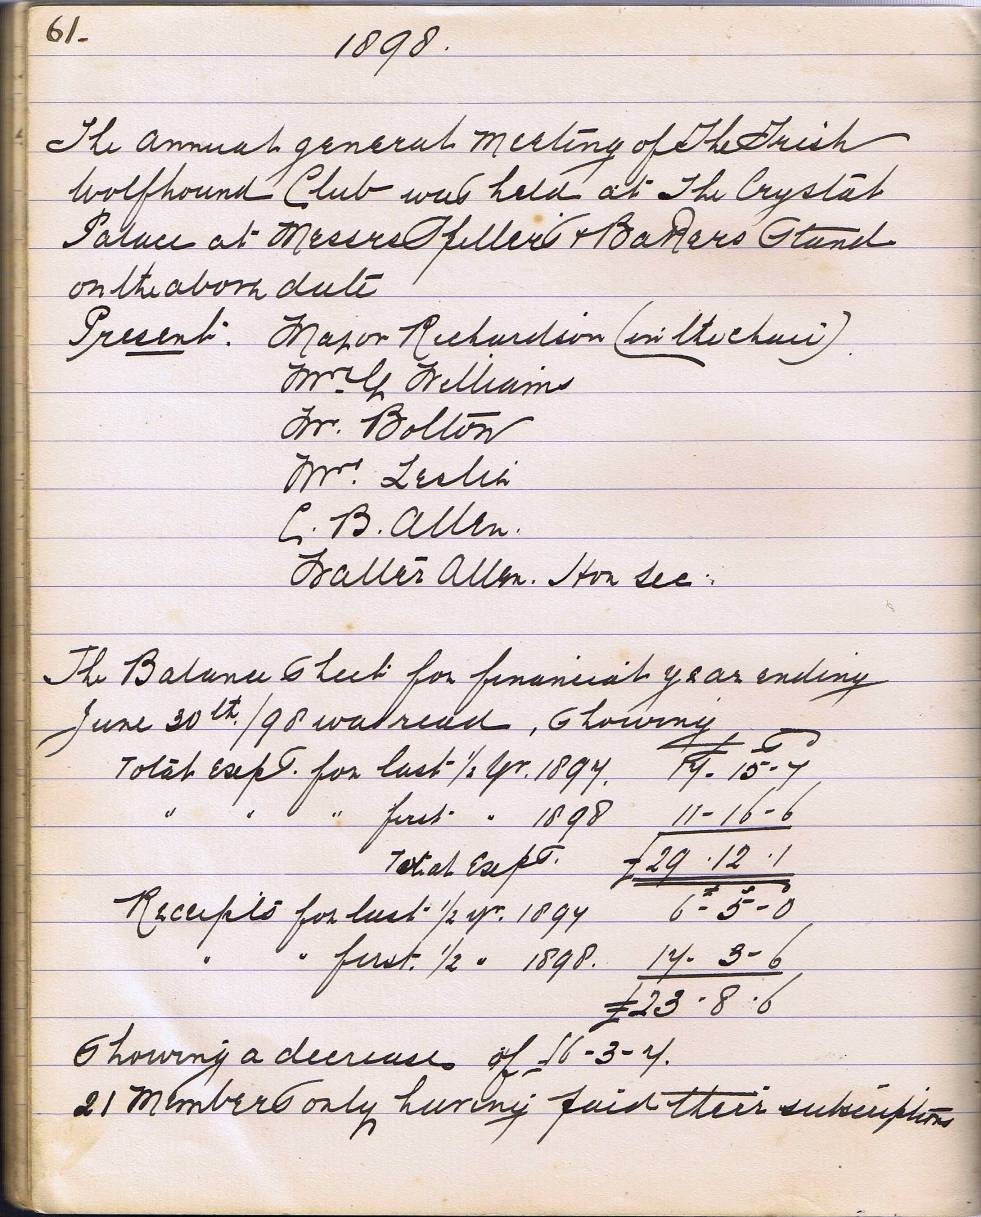 61-
1898.
The annual general meeting of The Irish
Wolfhound Club was held at The Crystal
Palace at Messrs Spillers & Bakers Stand
on the above date
Present: Major Richardson (in the chair).
Mr G Williams
Mr. Bolton
Mrs. Leslie
C. B. Allen.
Walter Allen. Hon Sec:
The Balance Sheet for financial year ending
June 30th./98 was read, showing
£ s d
Total Expt. for last 1/2 yr. 1897. 17-15-7
" " " first " 1898 11-16-6
Total Expt. £29.12.1
£ s d
Receipts for last 1/2 yr. 1897 6-5-0
" " first. 1/2 " 1898. 17-3-6
£23.8.6
Showing a decrease of £6-3-7.
21 Members only having paid their subscriptions